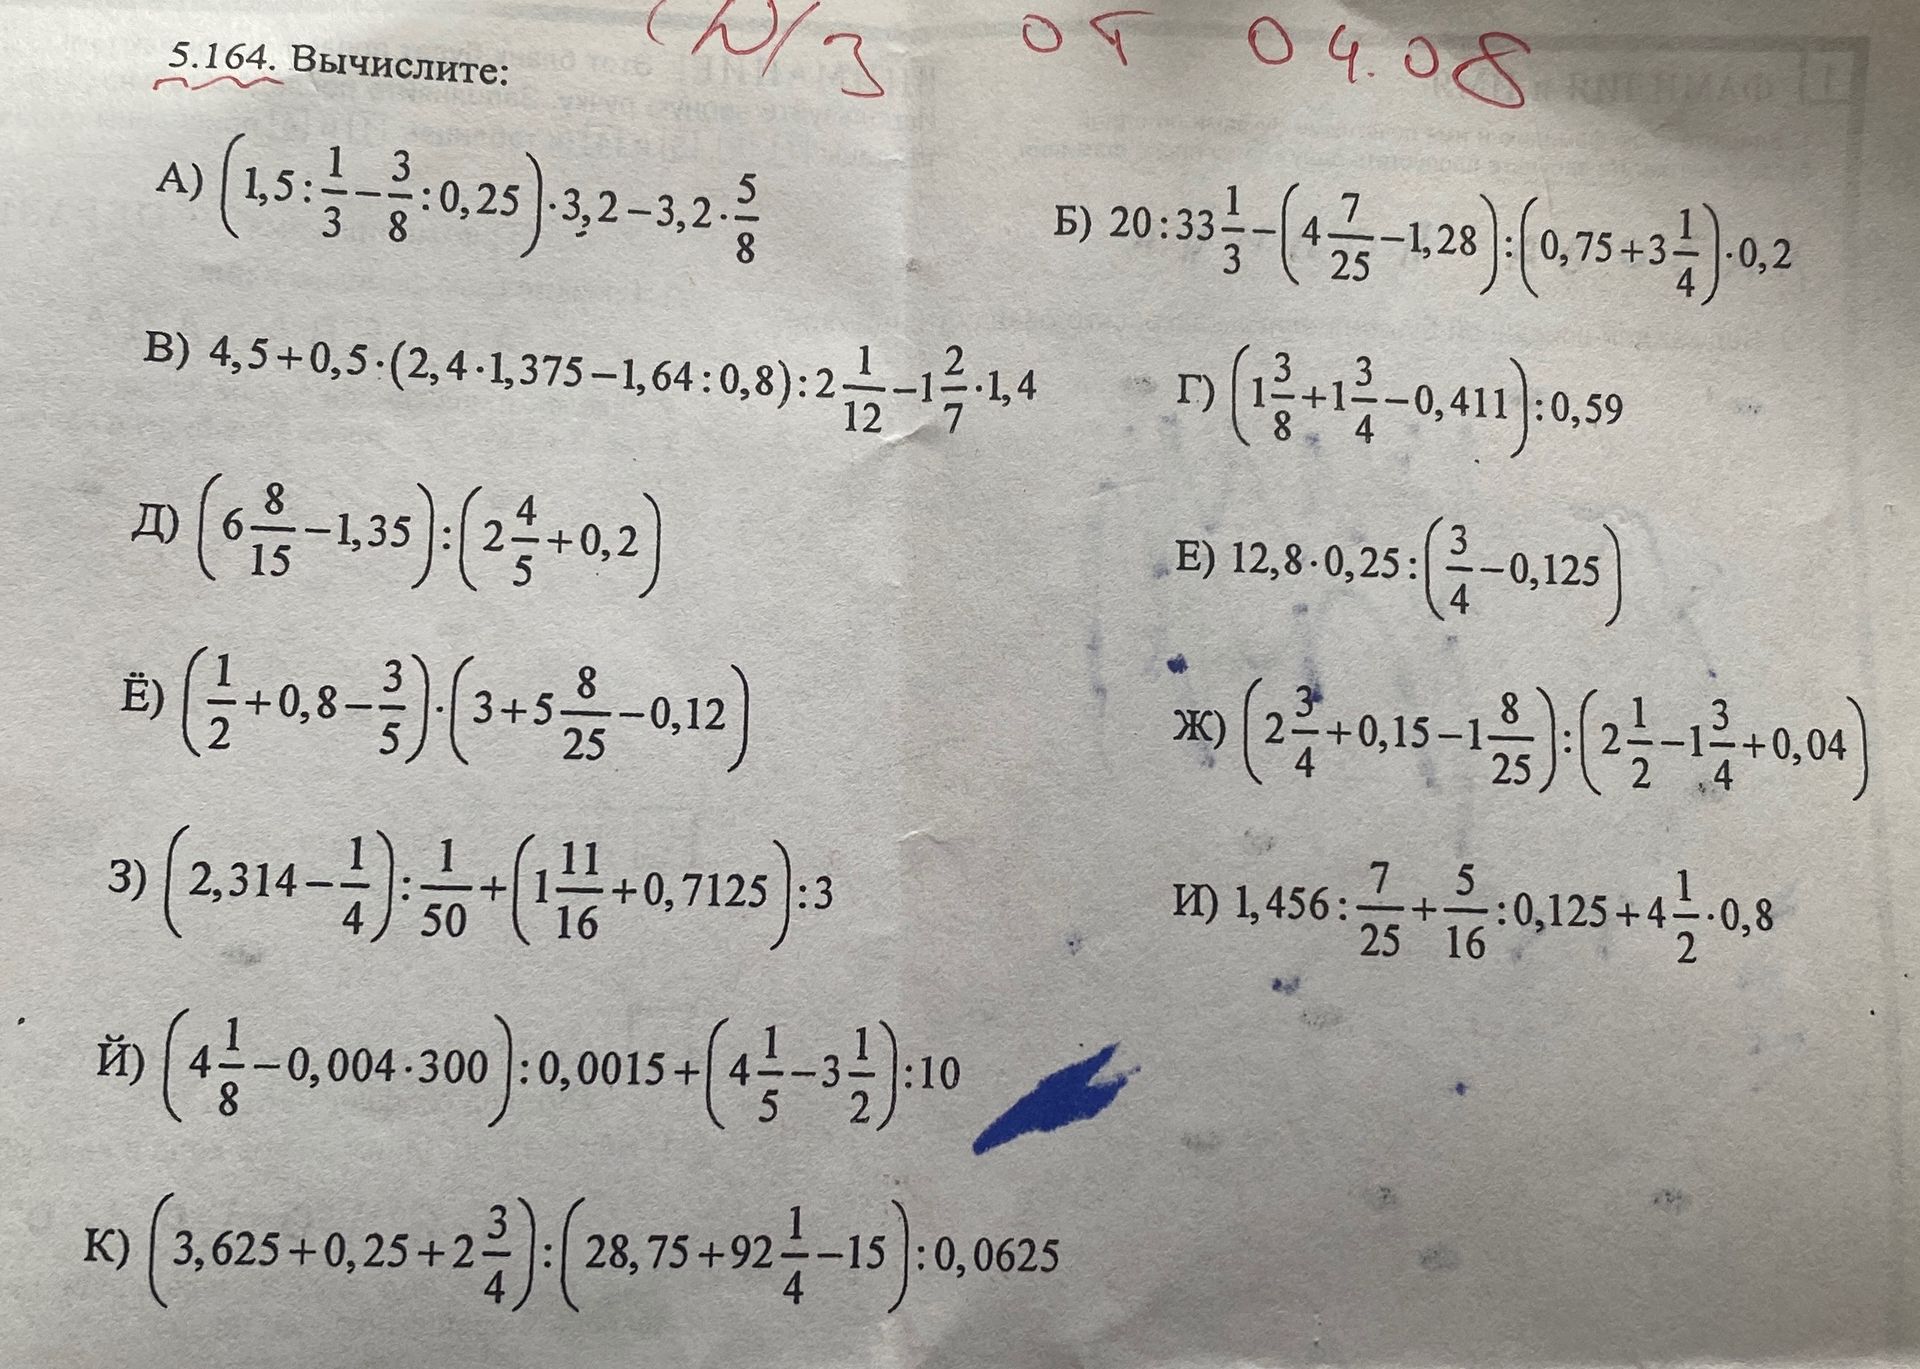 Д/З от 04.08
5.164. Вычислите:
А) (1,5 : 1/3 − 3/8 : 0,25) · 3,2 − 3,2 · 5/8
Б) 20 : 33 1/3 − (4 7/25 − 1,28) : (0,75 + 3 1/4) · 0,2
В) 4,5 + 0,5 · (2,4 · 1,375 − 1,64 : 0,8) : 2 1/12 − 1 2/7 · 1,4
Г) (1 3/8 + 1 3/4 − 0,411) : 0,59
Д) (6 8/15 − 1,35) : (2 4/5 + 0,2)
Е) 12,8 · 0,25 : (3/4 − 0,125)
Ё) (1/2 + 0,8 − 3/5) · (3 + 5 8/25 − 0,12)
Ж) (2 3/4 + 0,15 − 1 8/25) : (2 1/2 − 1 3/4 + 0,04)
З) (2,314 − 1/4) : 1/50 + (1 11/16 + 0,7125) : 3
И) 1,456 : 7/25 + 5/16 : 0,125 + 4 1/2 · 0,8
Й) (4 1/8 − 0,004 · 300) : 0,0015 + (4 1/5 − 3 1/2) : 10
К) (3,625 + 0,25 + 2 3/4) : (28,75 + 92 1/4 − 15) : 0,0625